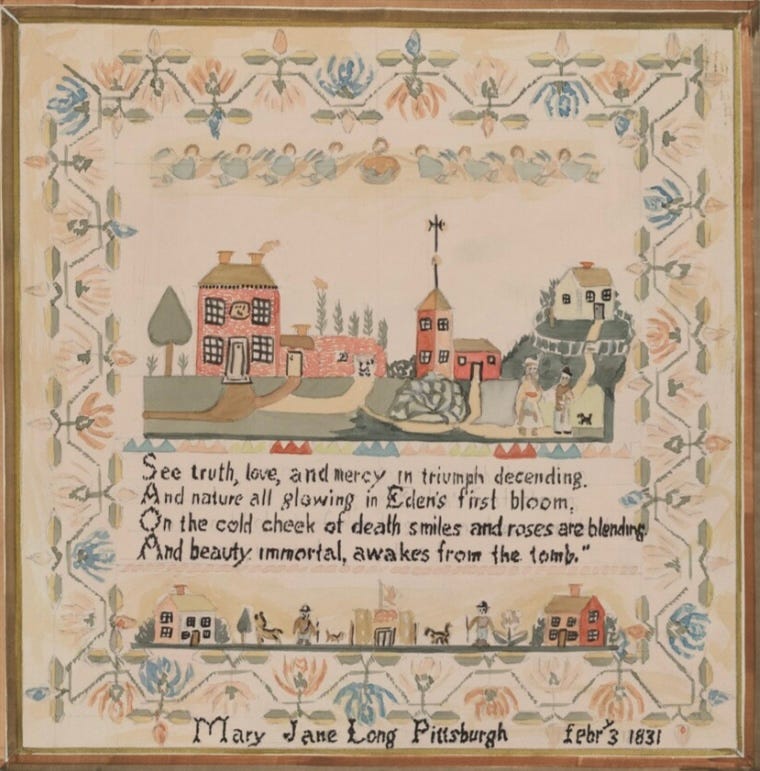 See truth, love, and mercy in triumph decending,
And nature all glowing in Eden's first bloom,
On the cold cheek of death smiles and roses are blending
And beauty immortal, awakes from the tomb."
Mary Jane Long Pittsburgh febry 3 1831